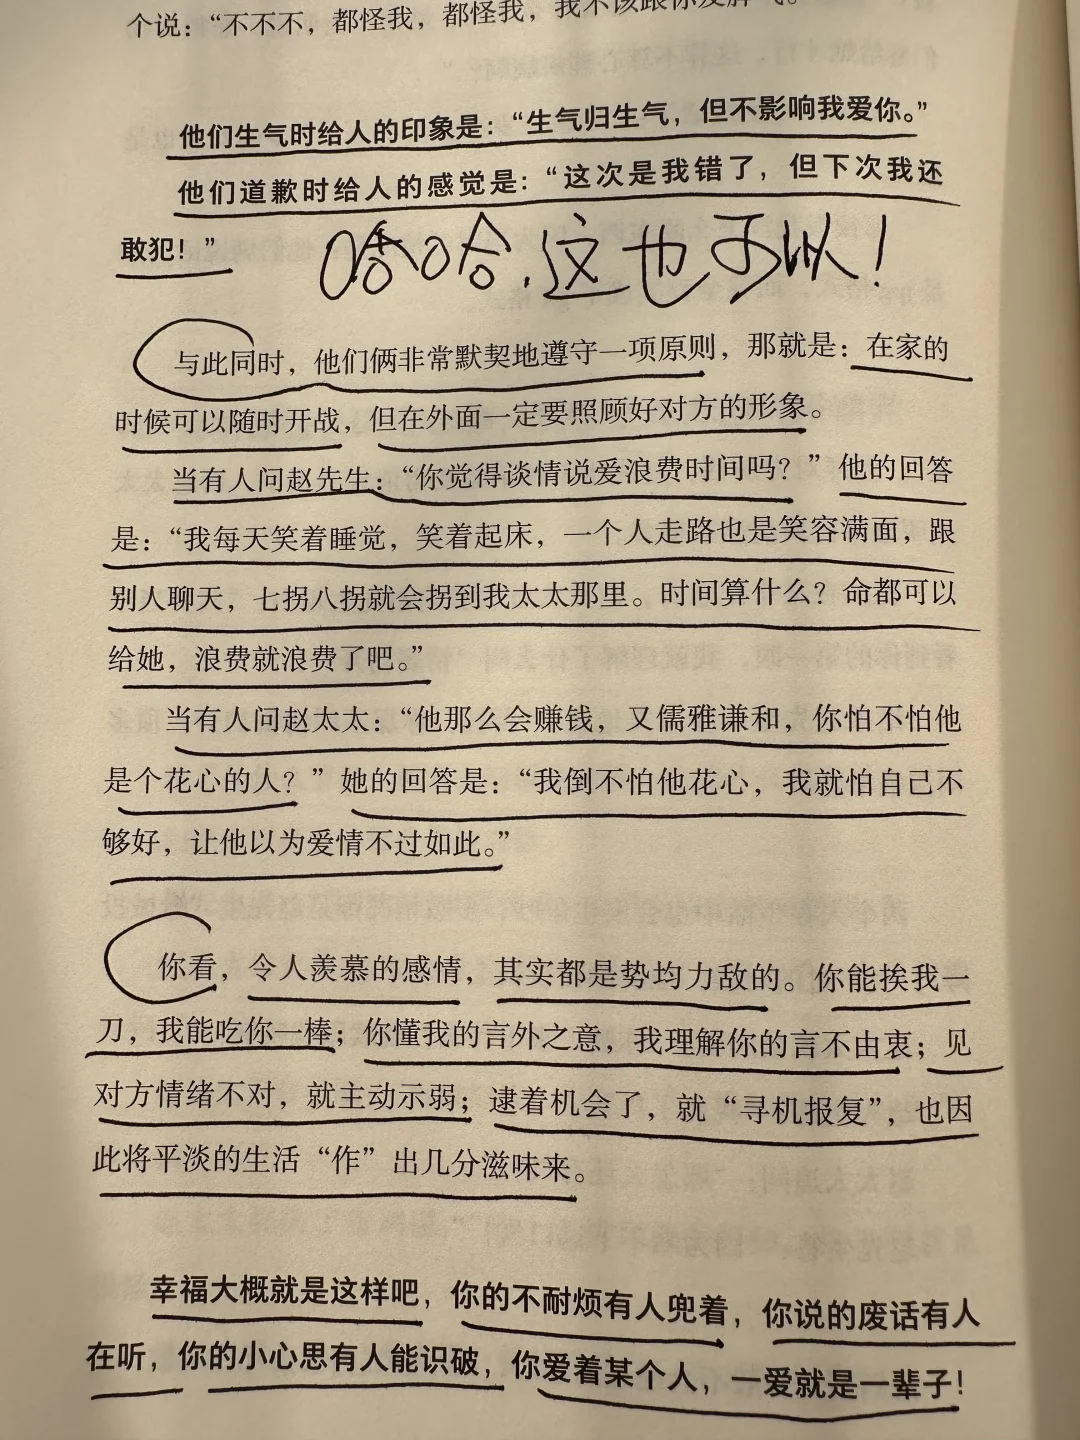 个说：“不不不，都怪我，都怪我，我不该跟你发脾气。
他们生气时给人的印象是：“生气归生气，但不影响我爱你。”
他们道歉时给人的感觉是：“这次是我错了，但下次我还
敢犯！”
哈哈，这也可以！
与此同时，他们俩非常默契地遵守一项原则，那就是：在家的
时候可以随时开战，但在外面一定要照顾好对方的形象。
当有人问赵先生：“你觉得谈情说爱浪费时间吗？”他的回答
是：“我每天笑着睡觉，笑着起床，一个人走路也是笑容满面，跟
别人聊天，七拐八拐就会拐到我太太那里。时间算什么？命都可以
给她，浪费就浪费了吧。”
当有人问赵太太：“他那么会赚钱，又儒雅谦和，你怕不怕他
是个花心的人？”她的回答是：“我倒不怕他花心，我就怕自己不
够好，让他以为爱情不过如此。”
你看，令人羡慕的感情，其实都是势均力敌的。你能挨我一
刀，我能吃你一棒；你懂我的言外之意，我理解你的言不由衷；见
对方情绪不对，就主动示弱；逮着机会了，就“寻机报复”，也因
此将平淡的生活“作”出几分滋味来。
幸福大概就是这样吧，你的不耐烦有人兜着，你说的废话有人
在听，你的小心思有人能识破，你爱着某个人，一爱就是一辈子！